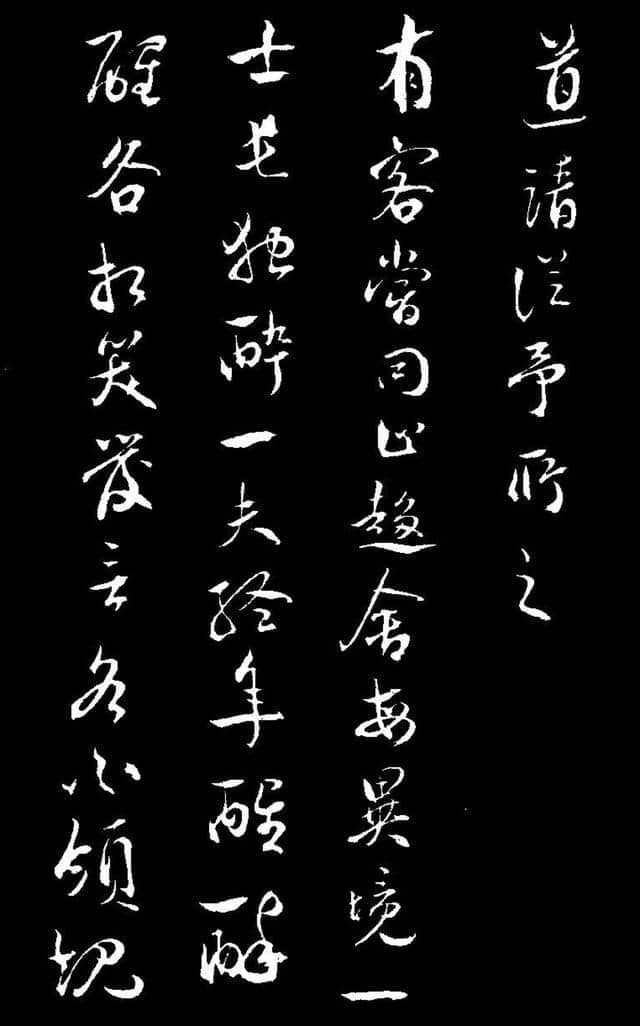 道請從予所之
有客嘗同止趍舍每異境一
士長獨醉一夫終年醒醉
醒各相笑發言各不領規